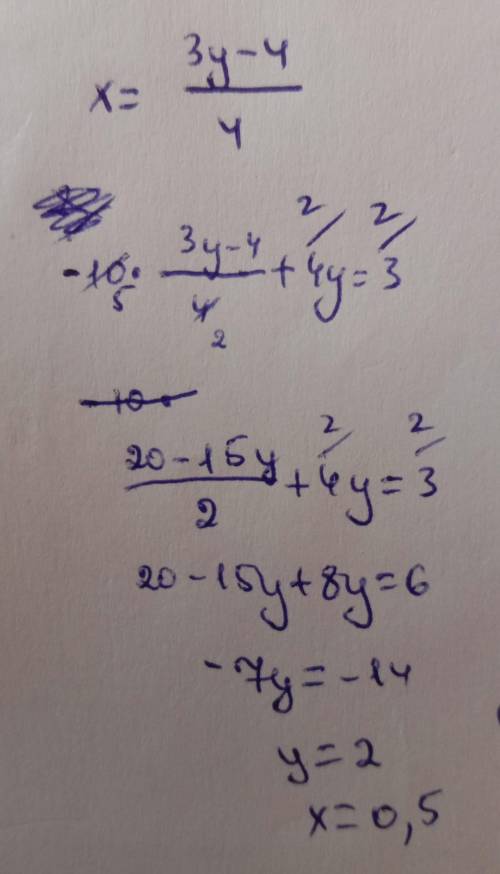 x = (3y-4)/4
-10· (3y-4)/4 + 4y = 3
5 2 2 2
-10·
(20-15y)/2 + 4y = 3
2 2
20-15y+8y=6
-7y=-14
y=2
x=0,5